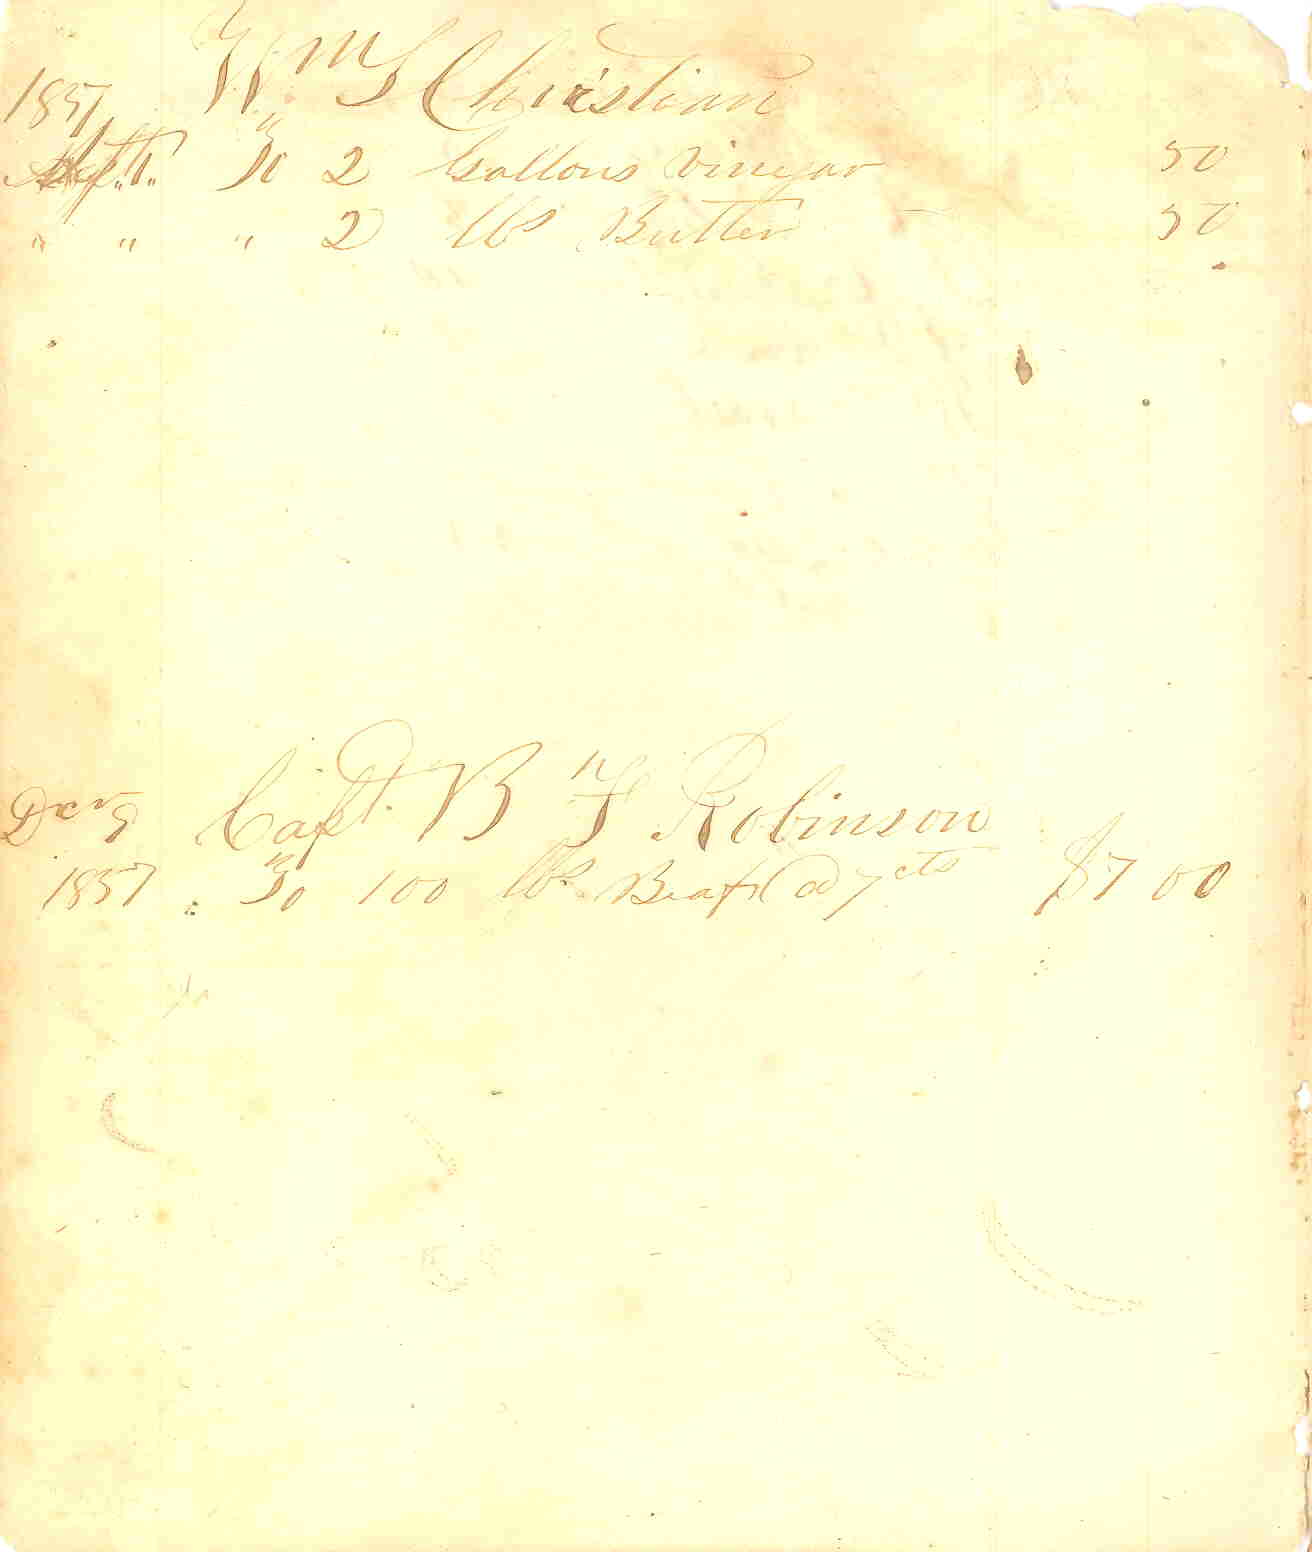 Wm S Christian
1857
Sept. To 2 Gallons Vinegar 50
" " " 2 lbs Butter 50
Capt. B F Robinson
Dec 9
1857 To 100 lbs Beaf @ 7cts $7 00